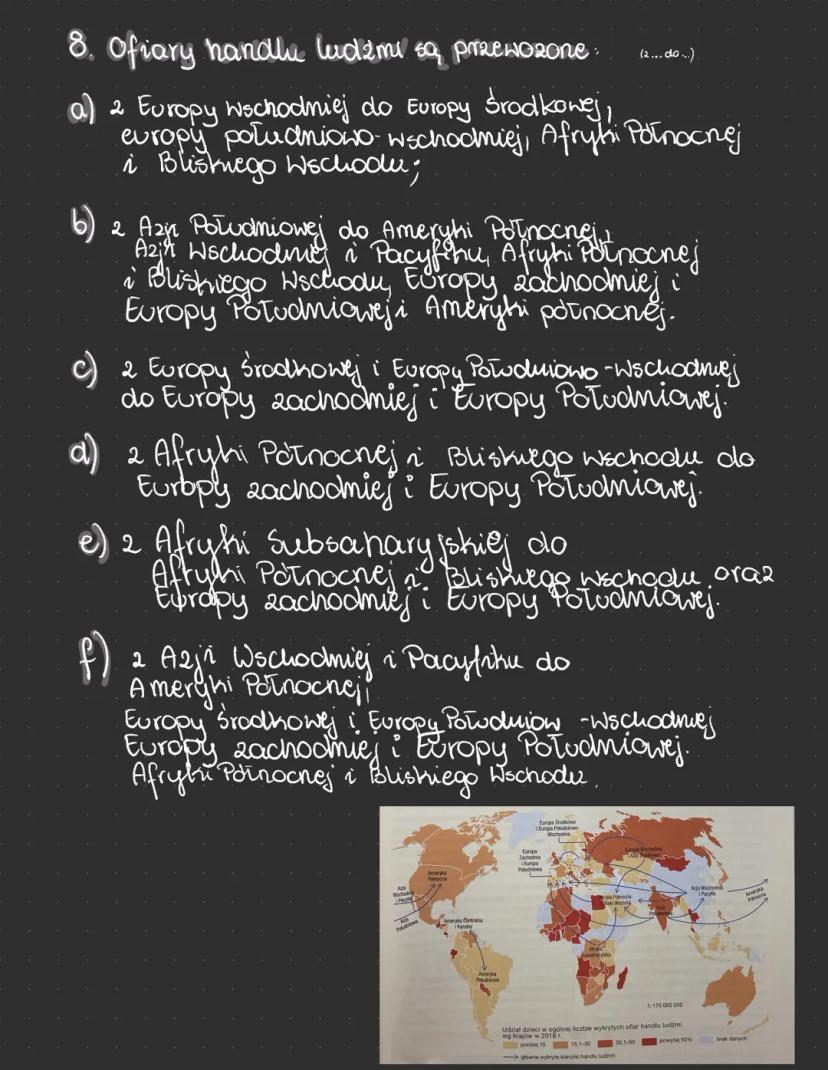 8. Ofiary handlu ludźmi są przewożone: (z...do...)
a) z Europy Wschodniej do Europy Środkowej,
europy południowo-wschodniej, Afryki Północnej
i Bliskiego Wschodu;
b) z Azji Południowej do Ameryki Północnej,
Azji Wschodniej i Pacyfiku, Afryki Północnej
i Bliskiego Wschodu, Europy zachodniej i
Europy Południowej i Ameryki północnej.
c) z Europy środkowej i Europy Południowo-Wschodniej
do Europy zachodniej i Europy Południowej.
d) z Afryki Północnej i Bliskiego wschodu do
Europy zachodniej i Europy Południowej.
e) z Afryki Subsaharyjskiej do
Afryki Północnej i Bliskiego wschodu oraz
Europy zachodniej i Europy Południowej.
f) z Azji Wschodniej i Pacyfiku do
Ameryki Północnej,
Europy środkowej i Europy Południow -Wschodniej
Europy zachodniej i Europy Południowej.
Afryki Północnej i Bliskiego Wschodu.
Europa Środkowa
i Europa Południowo-
-Wschodnia
Europa
Zachodnia
i Europa
Południowa
Europa Wschodnia
i Azja Środkowa
Ameryka
Północna
Azja
Wschodnia
i Pacyfik
Azja
Południowa
Ameryka Centralna
i Karaiby
Ameryka
Południowa
Afryka Północna
i Bliski Wschód
Azja
Południowa
Azja Wschodnia
i Pacyfik
Ameryka
Północna
Afryka
Subsaharyjska
1:170 000 000
Udział dzieci w ogólnej liczbie wykrytych ofiar handlu ludźmi
wg krajów w 2018 r.
poniżej 15 15,1–30 30,1–50 powyżej 50% brak danych
główne wykryte kierunki handlu ludźmi